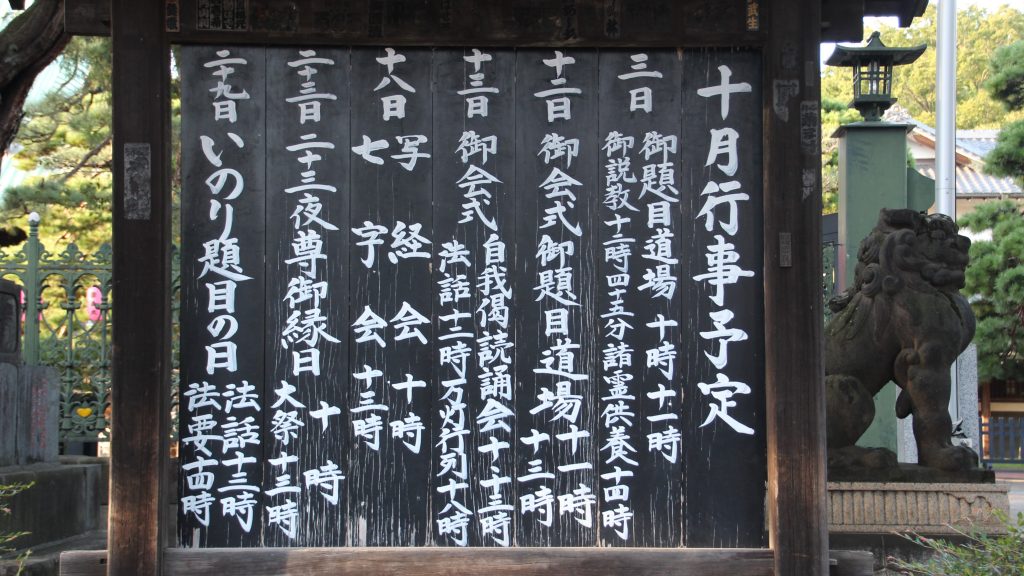 十月行事予定
三日
御題目道場 十時 十一時
御説教十二時四五分 諸霊供養十四時
十二日
御会式御題目道場 十一時
十三時
十三日
御会式 自我偈読誦会 十・十三時
法話十二時 万灯行列十八時
十八日
写経会 十時
七字会 十三時
二十三日
二十三夜尊御縁日 十時
大祭 十三時
二十九日
いのり題目の日 法話十三時
法要十四時